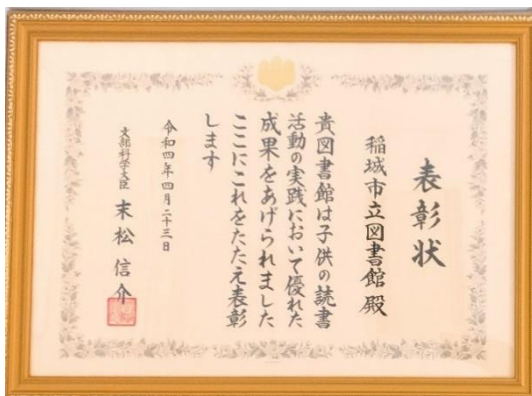 表彰状
稲城市立図書館 殿
貴図書館は子供の読書
活動の実践において優れた
成果をあげられました
ここにこれをたたえ表彰
します
令和四年四月二十三日
文部科学大臣 末松信介